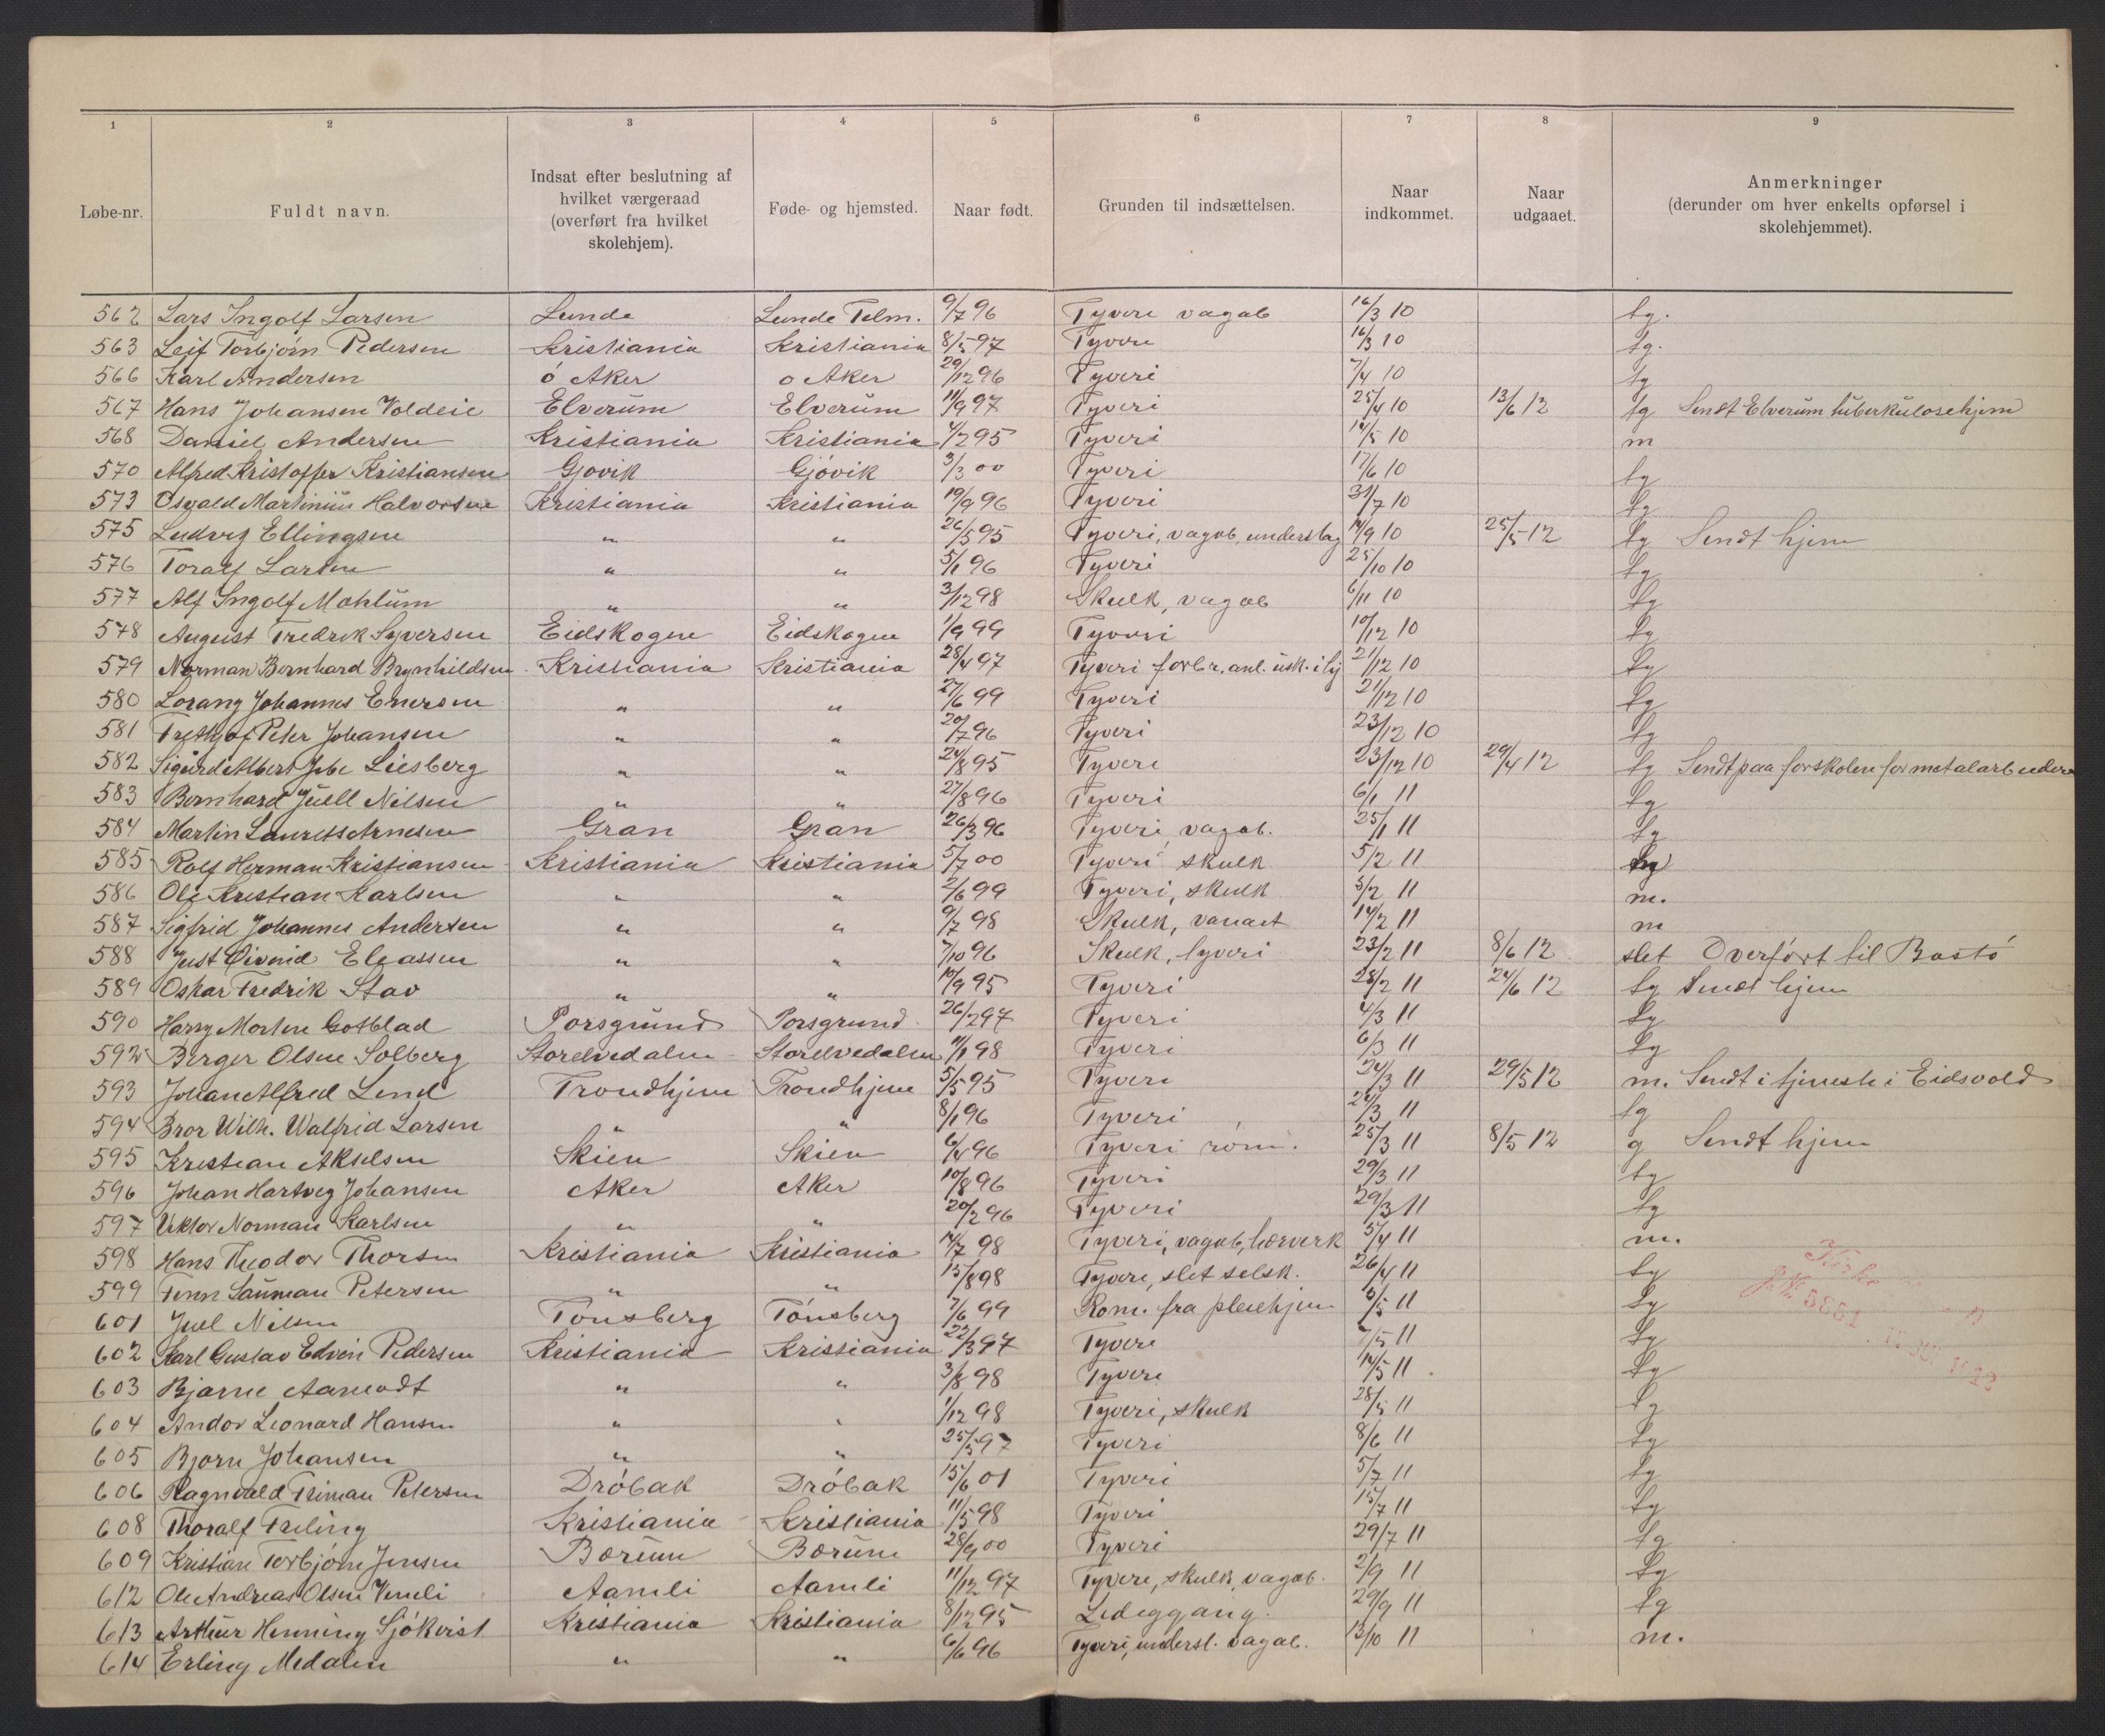 1 2 3 4 5 6 7 8 9
Løbe-nr. Fuldt navn. Indsat efter beslutning af hvilket værgeraad (overført fra hvilket skolehjem). Føde- og hjemsted. Naar født. Grunden til indsættelsen. Naar indkommet. Naar udgaaet. Anmerkninger (derunder om hver enkelts opførsel i skolehjemmet).
562 Lars Ingolf Larsen Lunde Lunde Telm. 9/7 96 Tyveri vagab 16/3 10 tg.
563 Leif Torbjørn Pedersen Kristiania Kristiania 8/5 97 Tyveri 16/3 10 tg.
566 Karl Andersen ø Aker ø Aker 29/12 96 Tyveri 7/4 10 tg
567 Hans Johansen Voldeie Elverum Elverum 11/9 97 Tyveri 25/4 10 13/6 12 tg Sendt Elverum tuberkulosehjem
568 Daniel Andersen Kristiania Kristiania 4/2 95 Tyveri 14/5 10 m
570 Alfred Kristoffer Kristiansen Gjøvik Gjøvik 3/3 00 Tyveri 17/6 10 tg
573 Osvald Martinius Halvorsen Kristiania Kristiania 19/9 96 Tyveri 31/7 10 tg
575 Ludvig Ellingsen " " 26/5 95 Tyveri, vagab, underslag 14/9 10 25/5 12 tg Sendt hjem
576 Toralf Larsen " " 5/1 96 Tyveri 25/10 10 tg
577 Alf Ingolf Mohlum " " 3/12 98 Skulk, vagab 6/11 10 tg
578 August Fredrik Syversen Eidskogen Eidskogen 1/9 99 Tyveri 10/12 10 tg
579 Norman Bernhard Brynhildsen Kristiania Kristiania 28/4 97 Tyveri forbr. anl. usk. i ly 21/12 10 tg
580 Lorang Johannes Enersen " " 27/6 99 Tyveri 21/12 10 tg
581 Frethjof Peter Johansen " " 20/7 96 Tyveri 23/12 10 tg
582 Sigurd Albert Liesberg " " 24/8 95 Tyveri 23/12 10 29/4 12 tg Sendt paa forskolen for metalarbeidere
583 Bernhard Juell Nilsen " " 27/8 96 Tyveri 6/1 11 tg
584 Martin Laurits Arnesen Gran Gran 26/3 96 Tyveri, vagab. 25/1 11 tg
585 Rolf Herman Kristiansen Kristiania Kristiania 5/7 00 Tyveri skulk 5/2 11 tg
586 Ole Kristian Karlsen " " 2/6 99 Tyveri, skulk 5/2 11 m.
587 Sigfrid Johannes Andersen " " 9/7 98 Skulk, vanart 14/2 11 m
588 Just Eivind Eliassen " " 7/10 96 Skulk, tyveri 23/2 11 8/6 12 slet Overført til Bastø
589 Oskar Fredrik Stav " " 10/9 95 Tyveri 28/2 11 24/6 12 tg Sendt hjem
590 Harry Morten Gotblad Porsgrund Porsgrund 26/2 97 Tyveri 4/3 11 tg
592 Birger Olsen Solberg Storelvedalen Storelvedalen 11/1 98 Tyveri 6/3 11 tg
593 Johan Alfred Lund Trondhjem Trondhjem 5/5 95 Tyveri 24/3 11 29/5 12 m. Sendt i tjeneste i Eidsvold
594 Bror Wilh. Walfrid Larsen " " 8/1 96 Tyveri 24/3 11 tg
595 Kristian Akselsen Skien Skien 6/4 96 Tyveri røm. 25/3 11 8/5 12 g Sendt hjem
596 Johan Hartvig Johansen Aker Aker 10/8 96 Tyveri 29/3 11 tg
597 Viktor Norman Karlsen " " 20/2 96 Tyveri 29/3 11 tg
598 Hans Theodor Thorsen Kristiania Kristiania 14/7 98 Tyveri, vagab, hærverk 5/4 11 m.
599 Finn Sauman Petersen " " 15/8 98 Tyveri, slet selsk. 26/4 11 tg
601 Juel Nilsen Tønsberg Tønsberg 7/6 99 Røm. fra pleiehjem 6/5 11 tg
602 Karl Gustav Edvin Pedersen Kristiania Kristiania 22/3 97 Tyveri 7/5 11 tg
603 Bjarne Aamodt " " 3/8 98 Tyveri 14/5 11 tg
604 Andor Leonard Hansen " " 1/12 98 Tyveri, skulk 28/5 11 tg
605 Bjørn Johansen " " 25/5 97 Tyveri 8/6 11 tg
606 Ragnvald Friman Petersen Drøbak Drøbak 15/6 01 Tyveri 5/7 11 tg
608 Thoralf Freling Kristiania Kristiania 11/5 98 Tyveri 15/7 11 tg
609 Kristian Torbjørn Jensen Bærum Bærum 28/9 00 Tyveri 29/7 11 tg
612 Ole Andreas Olsen Vimeli Aamli Aamli 11/12 97 Tyveri, skulk, vagab. 2/9 11 tg
613 Arthur Henning Sjøkvist Kristiania Kristiania 8/12 95 Lediggang. 29/9 11 tg
614 Erling Medalen " " 6/6 96 Tyveri, undersl. vagab. 13/10 11 m.
5851